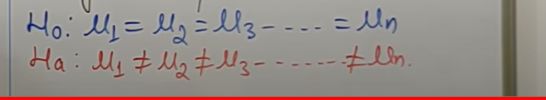 H₀: μ₁ = μ₂ = μ₃ ----- = μn
Ha: μ₁ ≠ μ₂ ≠ μ₃ ------- ≠ μn.